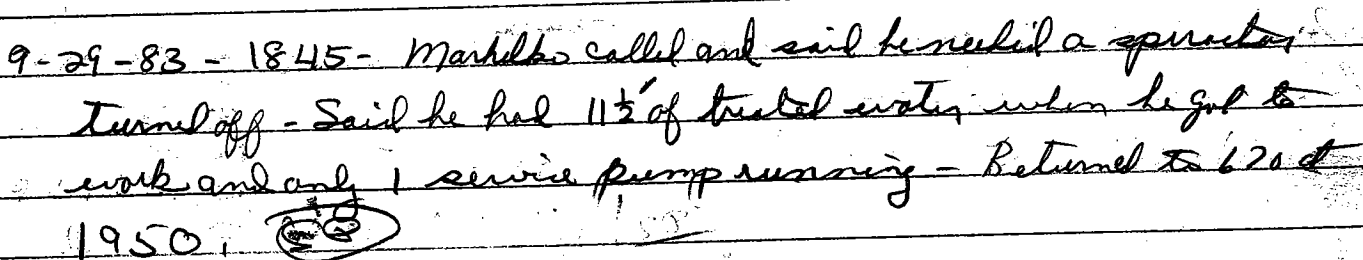 9-29-83 - 1845 - Markilko called and said he needed a spiractor
turned off - Said he had 11½' of treated water when he got to
work and only 1 service pump running - Returned to 620 at
1950.